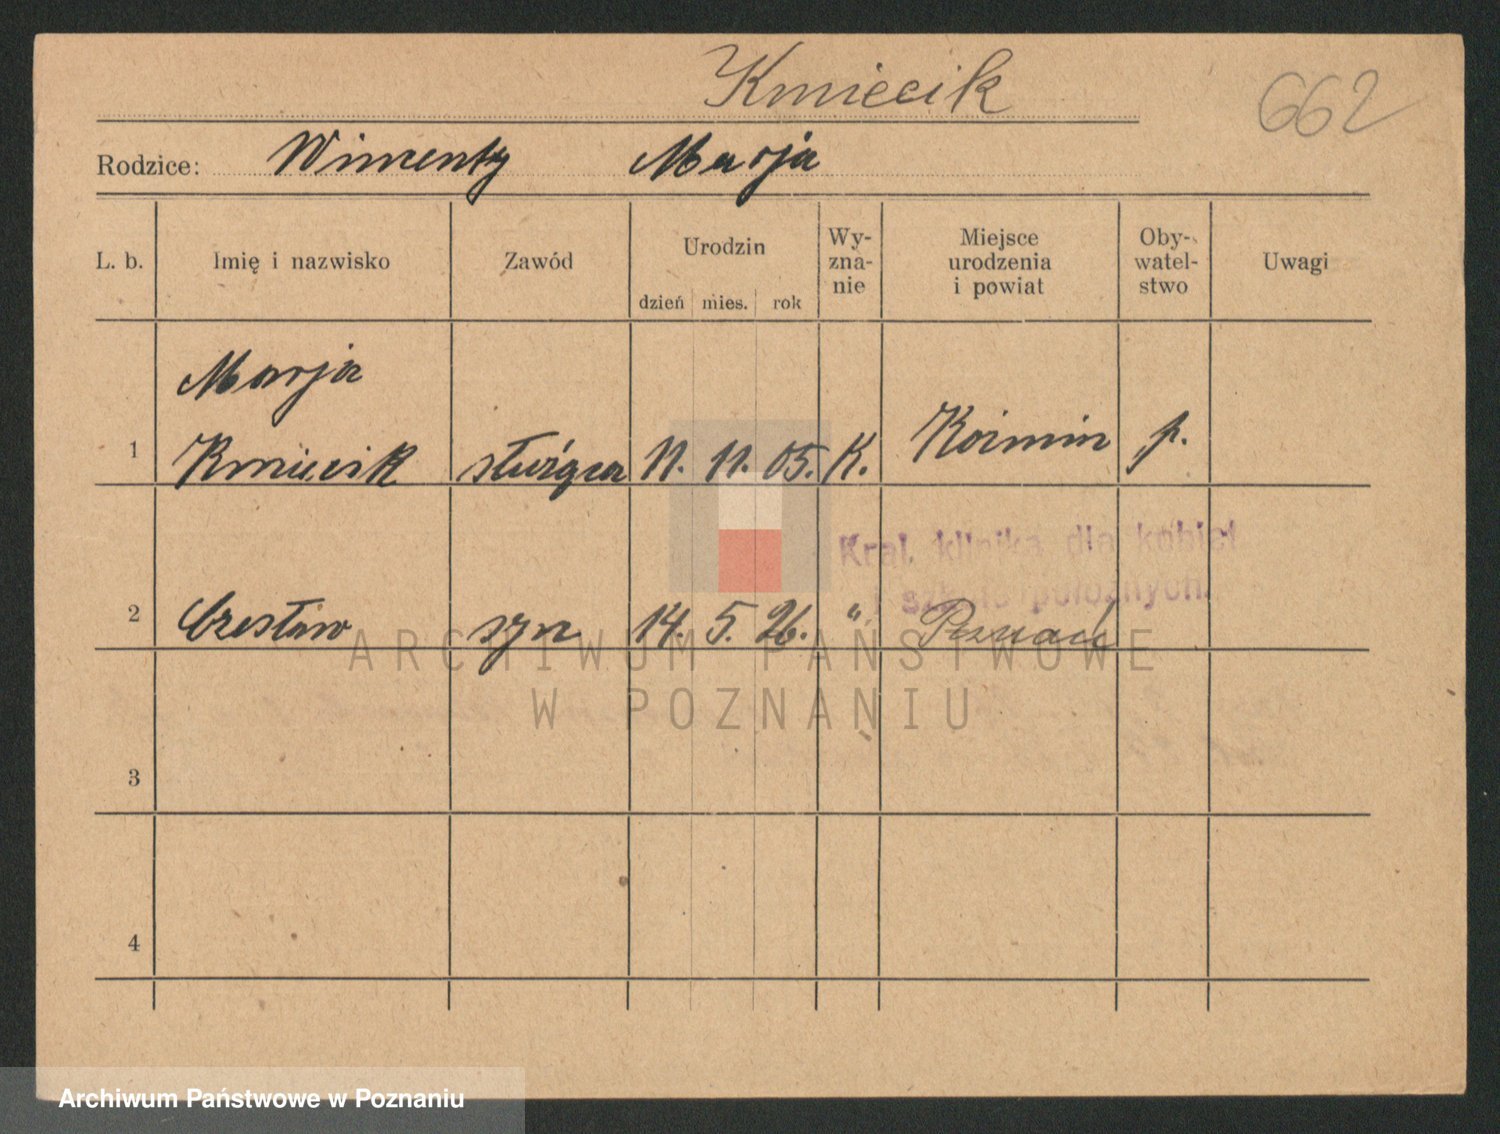 Kmiecik
662
Rodzice: Wincenty Marja
L. b. Imię i nazwisko Zawód Urodzin dzień mies. rok Wy-zna-nie Miejsce urodzenia i powiat Oby-watel-stwo Uwagi
1 Marja Kmiecik służąca 11. 11. 05. K. Koźmin p.
Krol. klinika dla kobiet
i szkoła położnych
2 Czesław syn 14. 5. 26. " Poznań
3
4
ARCHIWUM PAŃSTWOWE
W POZNANIU
Archiwum Państwowe w Poznaniu